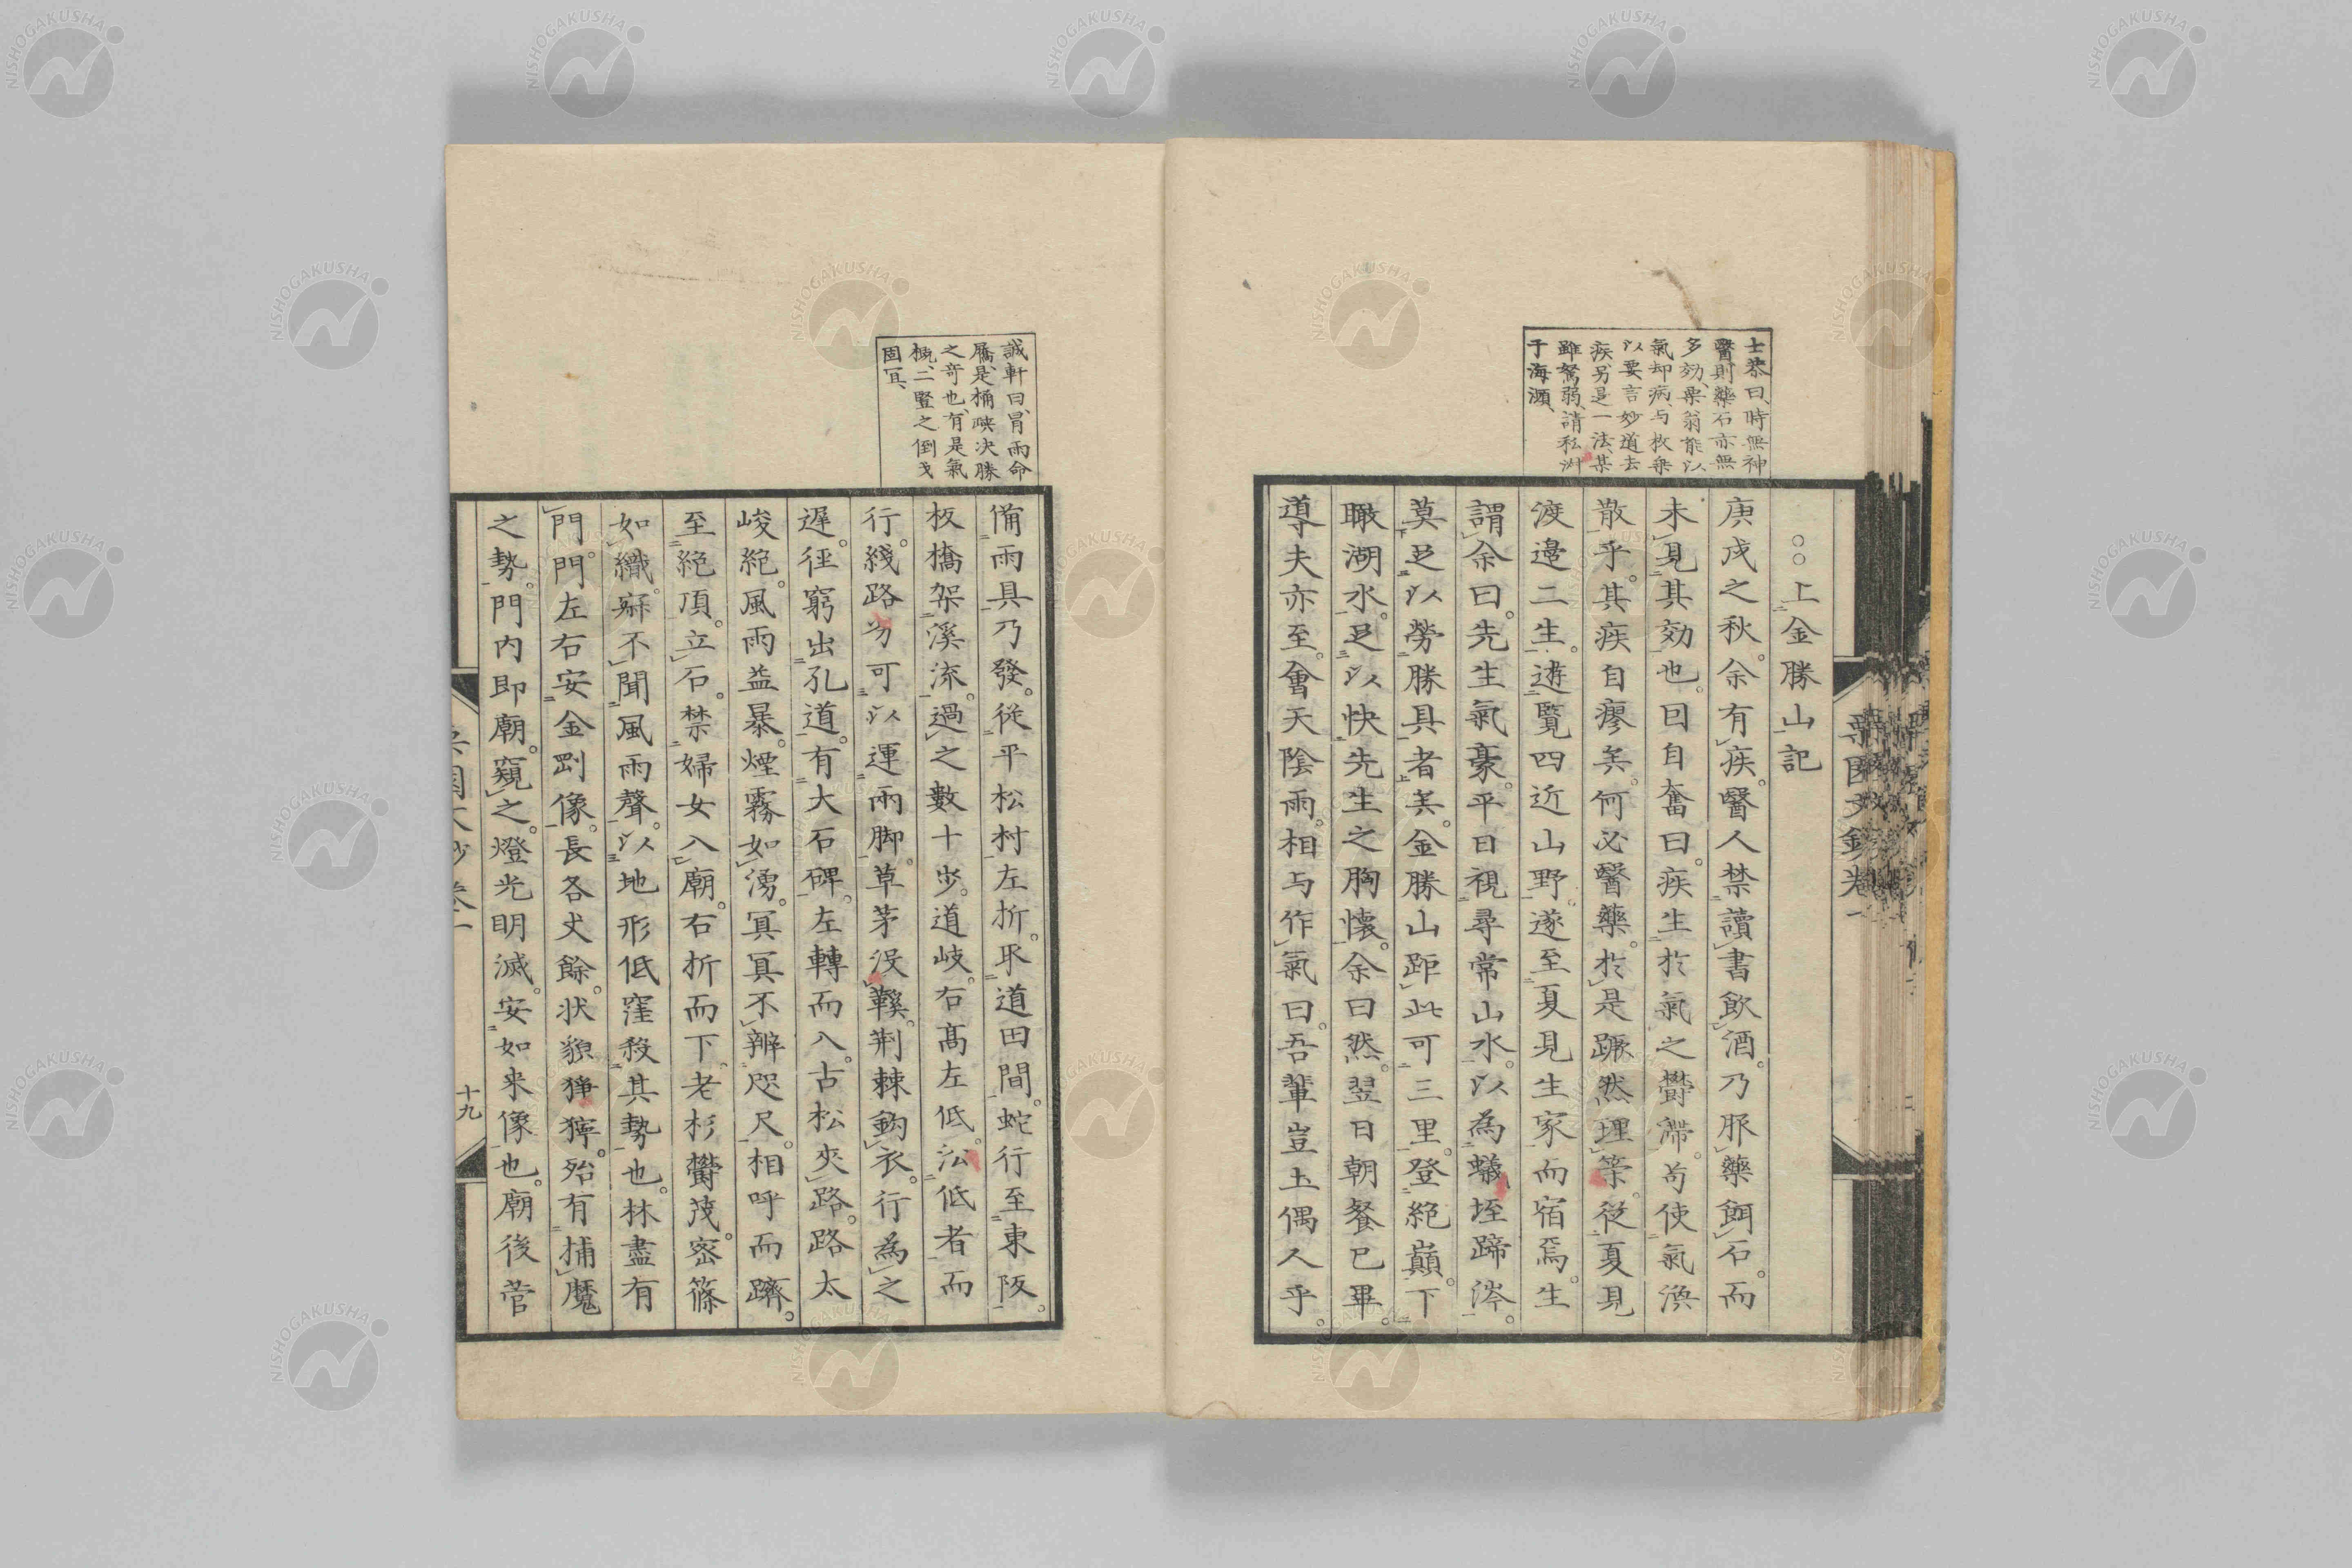 士恭曰、時無神
醫則藥石亦無
多効、栗翁能以
氣却病、与枚乗
以要言妙道去
疾、另是一法、某
雖駑弱、請私淑
于海濵、
○○上金勝山記
庚戌之秋。余有疾。醫人禁讀書飲酒。乃服藥餌石。而
未見其効也。因自奮曰。疾生於氣之欝滯。苟使氣渙
散乎。其疾自瘳矣。何必醫藥。於是蹶然理筇。從夏見
渡邉二生。遊覽四近山野。遂至夏見生家而宿焉。生
謂余曰。先生氣豪。平日視尋常山水。以為蟻垤蹄涔。
莫足以勞勝具者矣。金勝山距此可三里。登絶巓。下
瞰湖水。足以快先生之胸懷。余曰然。翌日朝餐已畢。
導夫亦至。會天陰雨。相与作氣曰。吾輩豈土偶人乎。
誠軒曰、冒雨命
屩、是桶映决勝
之奇也、有是氣
概、二豎之倒戈
固冝、
備雨具乃發。從平松村左折。取道田間。蛇行至東阪。
板橋架溪流。過之數十步。道岐。右髙左低。沿低者而
行。綫路劣可以運兩脚。草茅没鞵。荆棘鈎衣。行為之
遲。徑窮出孔道。有大石碑。左轉而入。古松夾路。路太
峻絶。風雨益暴。煙霧如湧。冥冥不辨咫尺。相呼而躋。
至絶頂。立石。禁婦女入廟。右折而下。老杉欝茂。宻篠
如織。寂不聞風雨聲。以地形低窪殺其勢也。林盡有
門。門左右安金剛像。長各丈餘。状貌猙獰。殆有捕魔
之勢。門内即廟。窺之。燈光明滅。安如来像也。廟後菅
栗園文鈔卷一
十九